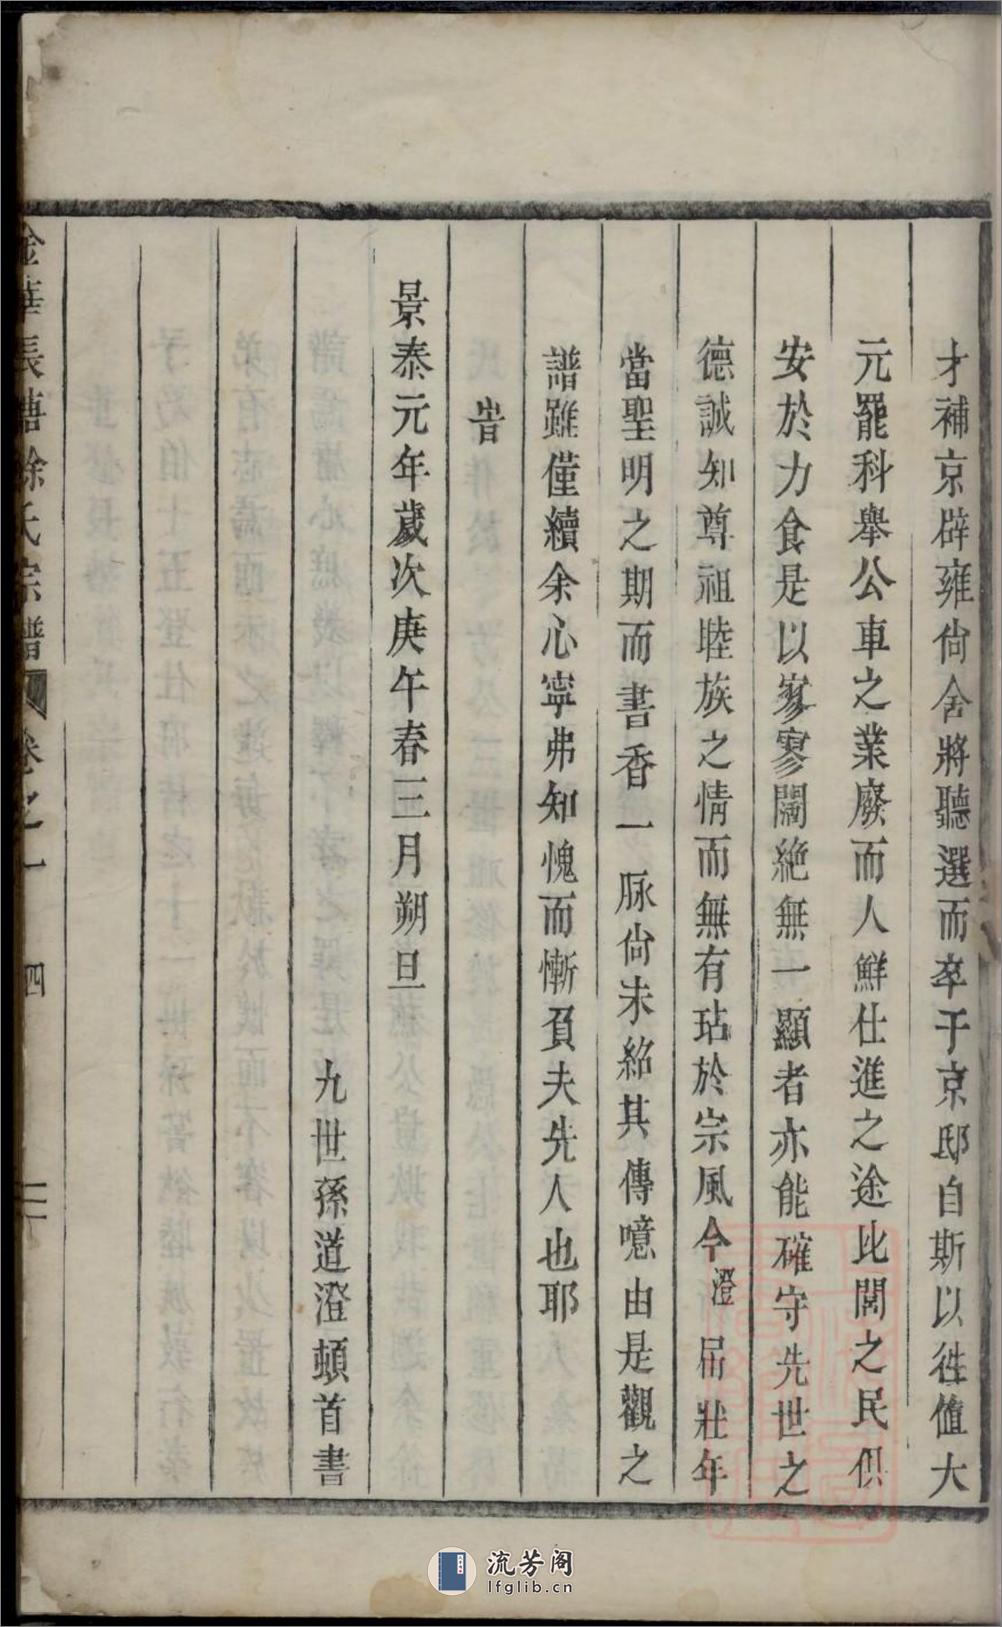 才補京辟雍尙舍將聽選而卒于京邸自斯以徃值大
元罷科舉公車之業廢而人鮮仕進之途比閭之民俱
安於力食是以寥寥闊絶無一顯者亦能確守先世之
德誠知尊祖睦族之情而無有玷於宗風今澄屆壯年
當聖明之期而書香一脉尙未紹其傳噫由是觀之
譜雖僅續余心寧弗知愧而慚負夫先人也耶
旹
景泰元年歲次庚午春三月朔旦
九世孫道澄頓首書
金華長塘徐氏宗譜 卷之一 四
流芳阁
lfglib.cn